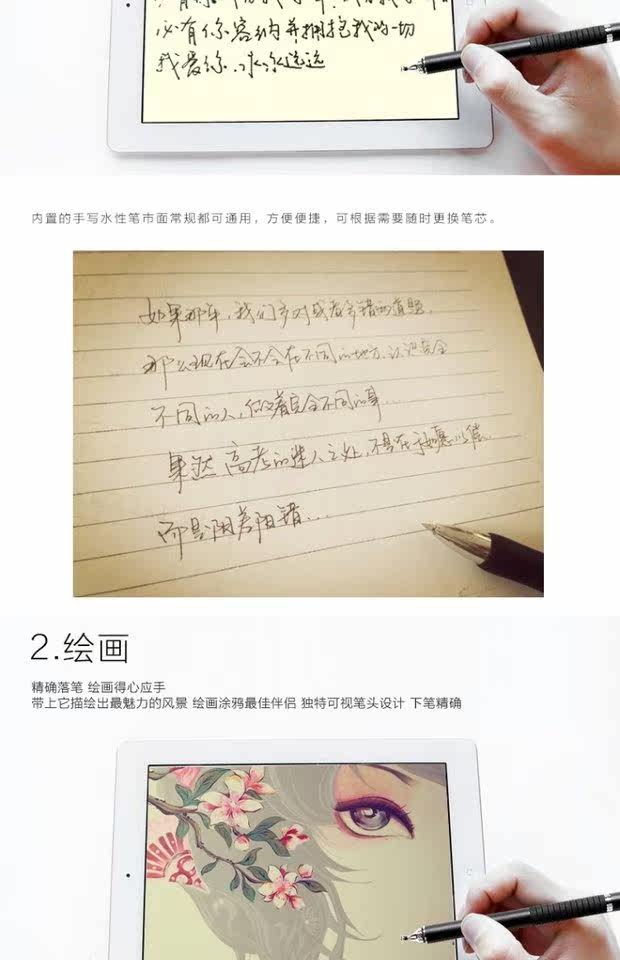 必有你容纳并拥抱我的一切
我爱你,永永远远
内置的手写水性笔市面常规都可通用，方便便捷，可根据需要随时更换笔芯。
如果那年，我们多对或者多错两道题，
那么现在会不会在不同的地方，认识完全
不同的人，做着完全不同的事...
果然高考的迷人之处，不是在于如愿以偿，
而是阴差阳错...
2.绘画
精确落笔 绘画得心应手
带上它描绘出最魅力的风景 绘画涂鸦最佳伴侣 独特可视笔头设计 下笔精确